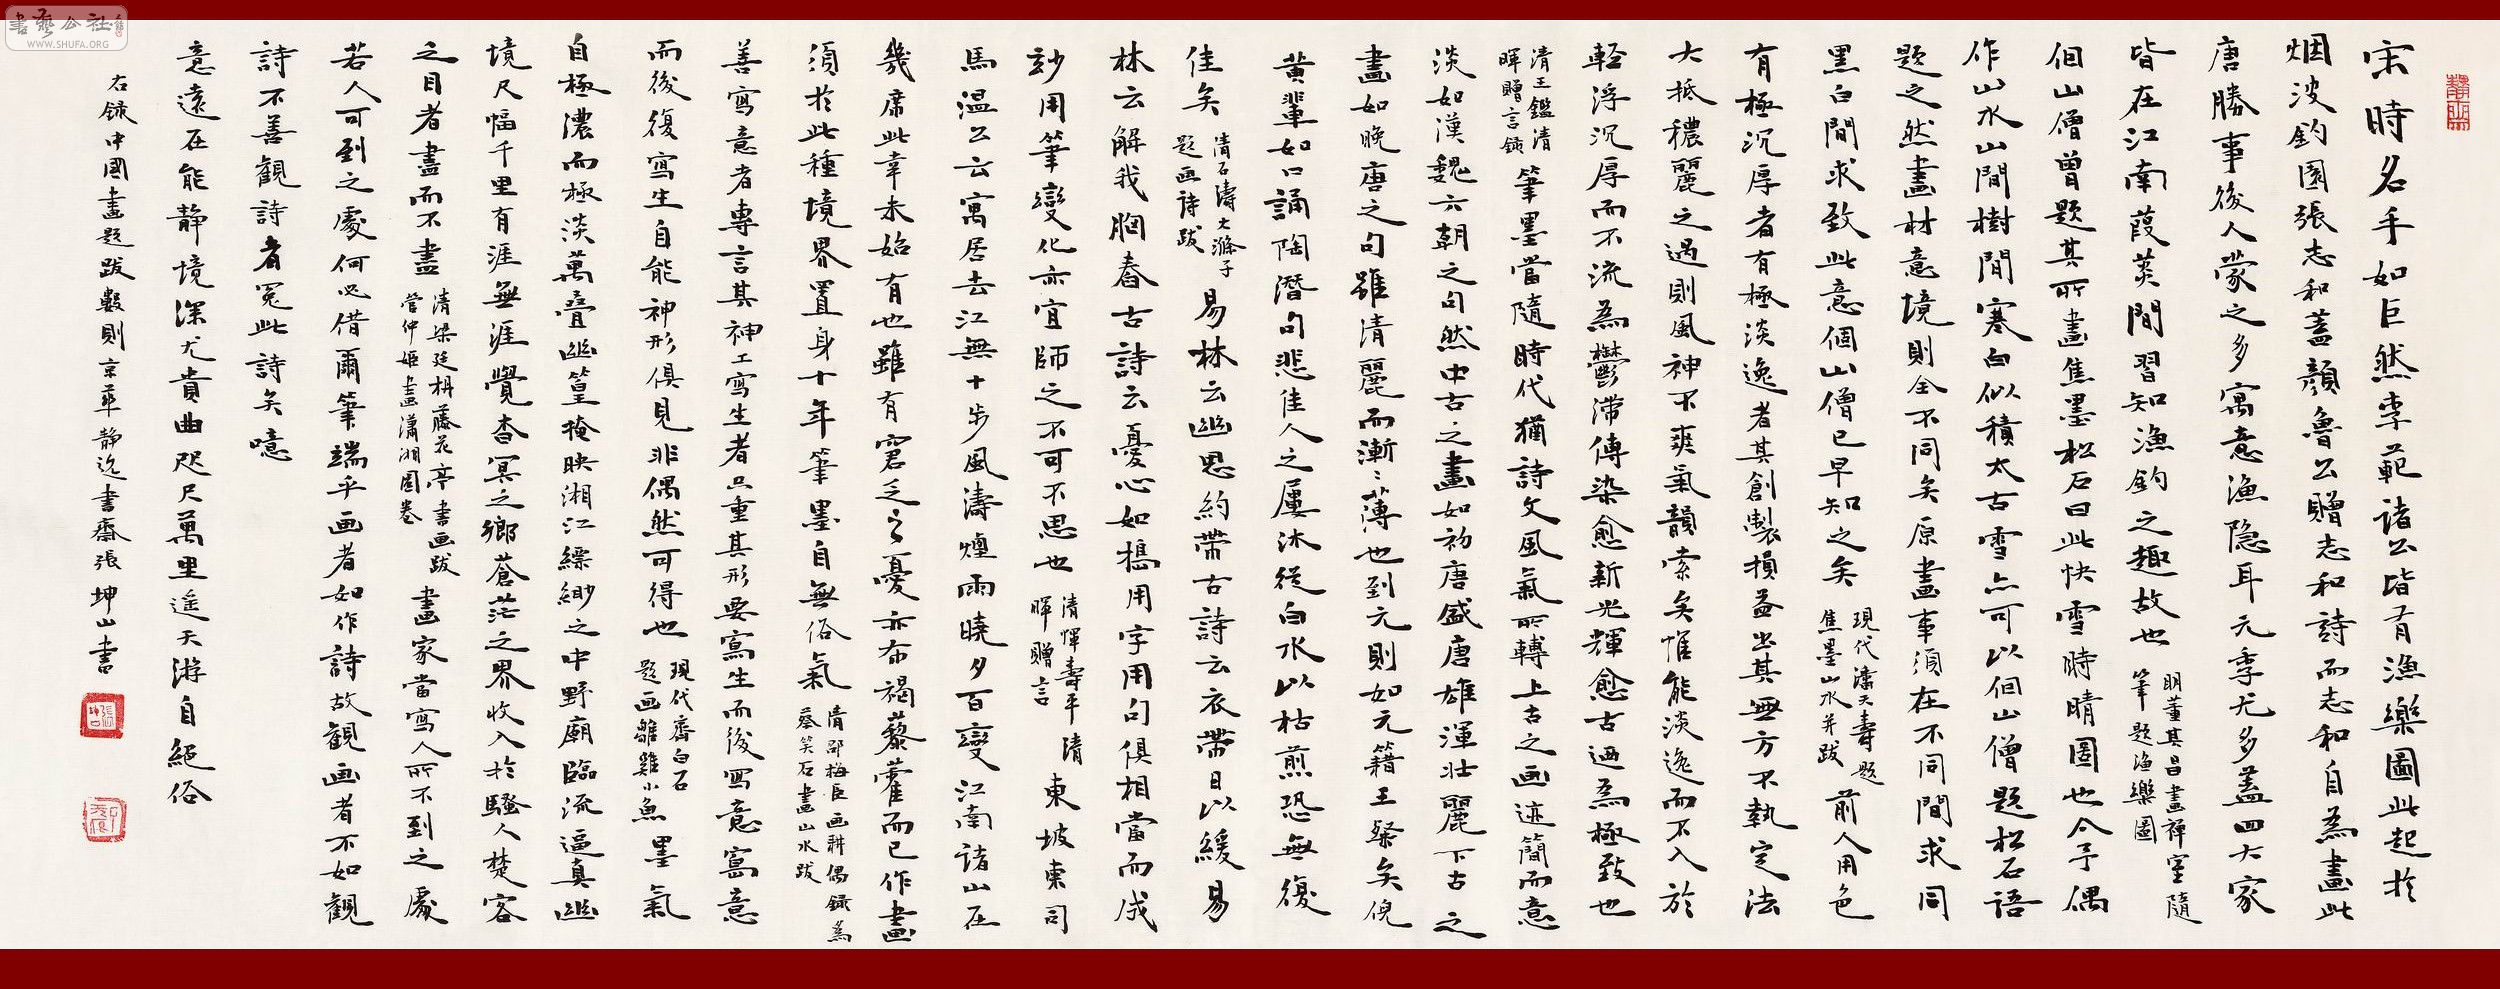 宋時名手如巨然李范諸公皆有漁樂圖此起於
烟波釣圖張志和蓋顏魯公贈志和詩而志和自為畫此
唐勝事後人蒙之多寓意漁隐耳元季尤多蓋四大家
皆在江南葭菼間習知漁釣之趣故也
明董其昌畫禅室隨
筆題漁樂圖
個山僧曾題其所畫焦墨松石曰此快雪時晴圖也今予偶
作山水山間樹間寒白似積太古雪亦可以個山僧題松石語
題之然畫材意境則全不同矣原畫事須在不同間求同
黑白間求致此意個山僧已早知之矣
現代潘天壽題
焦墨山水并跋
前人用色
有極沉厚者有極淡逸者其創製損益出其無方不執定法
大抵穠麗之過則風神不爽氣韻索矣惟能淡逸而不入於
輕浮沉厚而不流為鬱滯傅染愈新光輝愈古迺為極致也
清王鑑清
暉贈言錄
筆墨當隨時代猶詩文風氣所轉上古之画迹簡而意
淡如漢魏六朝之句然中古之畫如初唐盛唐雄渾壯麗下古之
畫如晚唐之句雖清麗而漸〻薄也到元則如元籍王粲矣倪
黄輩如口誦陶潛句悲佳人之屢沐從白水以枯煎恐無復
佳矣
清石濤大滌子
題画詩跋
易林云幽思約帶古詩云衣帶日以緩易
林云解我胸舂古詩云憂心如擣用字用句俱相當而成
妙用筆變化亦宜師之不可不思也
清惲壽平清
暉贈言
東坡東司
馬温公云寓居去江無十步風濤煙雨曉夕百變江南諸山在
幾席此幸未始有也雖有窘乏之憂亦布褐藜藿而已作畫
須於此種境界置身十年筆墨自無俗氣
清邵梅臣画耕偶錄為
蔡笑石畫山水跋
善寫意者專言其神工寫生者只重其形要寫生而後寫意寫意
而後復寫生自能神形俱見非偶然可得也
現代齊白石
題画雛雞小魚
墨氣
自極濃而極淡萬疊幽篁掩映湘江縹緲之中野廟臨流逼真幽
境尺幅千里有涯無涯覺杳冥之鄉蒼茫之界收入於騷人楚客
之目者畫而不盡
清梁廷枏藤花亭書画跋
管仲姬畫瀟湘圖卷
畫家當寫人所不到之處
若人可到之處何必借爾筆端乎画者如作詩故觀画者不如觀
詩不善觀詩者冤此詩矣噫
意遠在能静境深尤貴曲咫尺萬里遥天游自絕俗
右録中國畫題跋數則京華静逸書齋張坤山書
書藝公社
WWW.SHUFA.ORG